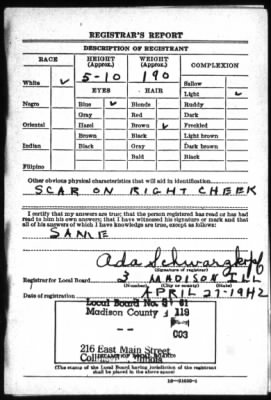 REGISTRAR'S REPORT
DESCRIPTION OF REGISTRANT
RACE HEIGHT (Approx.) WEIGHT (Approx.) COMPLEXION
5-10 190
White ✓ Sallow
EYES HAIR Light ✓
Negro Blue ✓ Blonde Ruddy
Gray Red Dark
Oriental Hazel Brown ✓ Freckled
Brown Black Light brown
Indian Black Gray Dark brown
Bald Black
Filipino
Other obvious physical characteristics that will aid in identification
SCAR ON RIGHT CHEEK
I certify that my answers are true; that the person registered has read or has had
read to him his own answers; that I have witnessed his signature or mark and that
all of his answers of which I have knowledge are true, except as follows:
SAME
Ada Schwarzkopf
(Signature of registrar)
Registrar for Local Board 3 MADISON ILL
(Number) (City or county) (State)
Date of registration APRIL 27-1942
Local Board No. 3
Madison County 119
003
216 East Main Street
(STAMP OF LOCAL BOARD)
(The stamp of the Local Board having jurisdiction of the registrant
shall be placed in the above space)